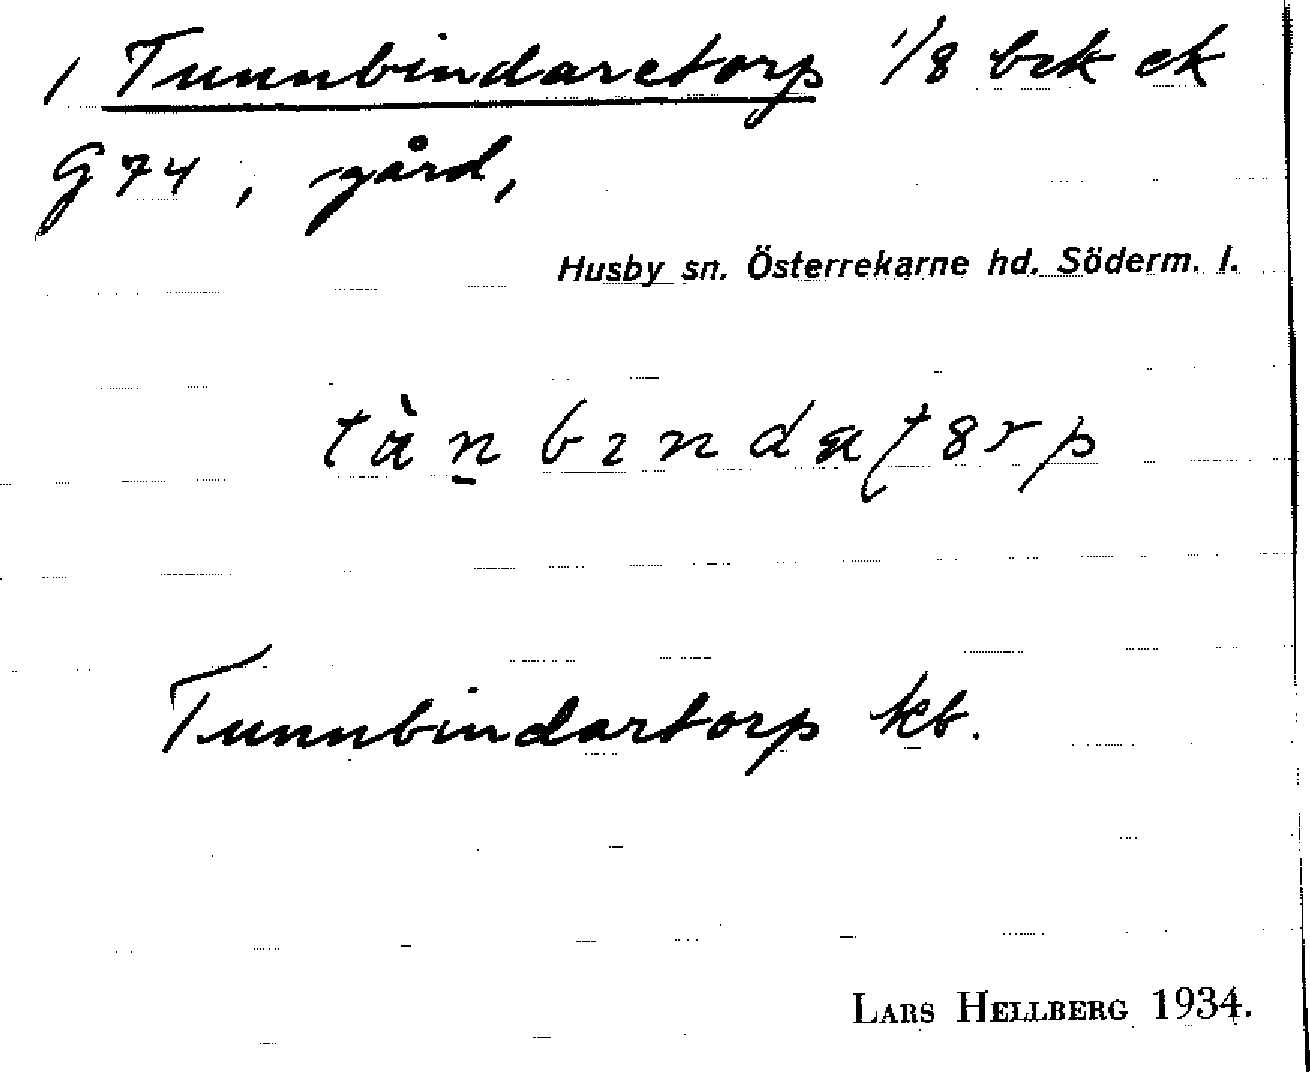 1 Tunnbindaretorp 1/8 bek ek
G 74, gård,
Husby sn. Österrekarne hd. Söderm. l.
Tunnbindartorp kb.
LARS HELLBERG 1934.